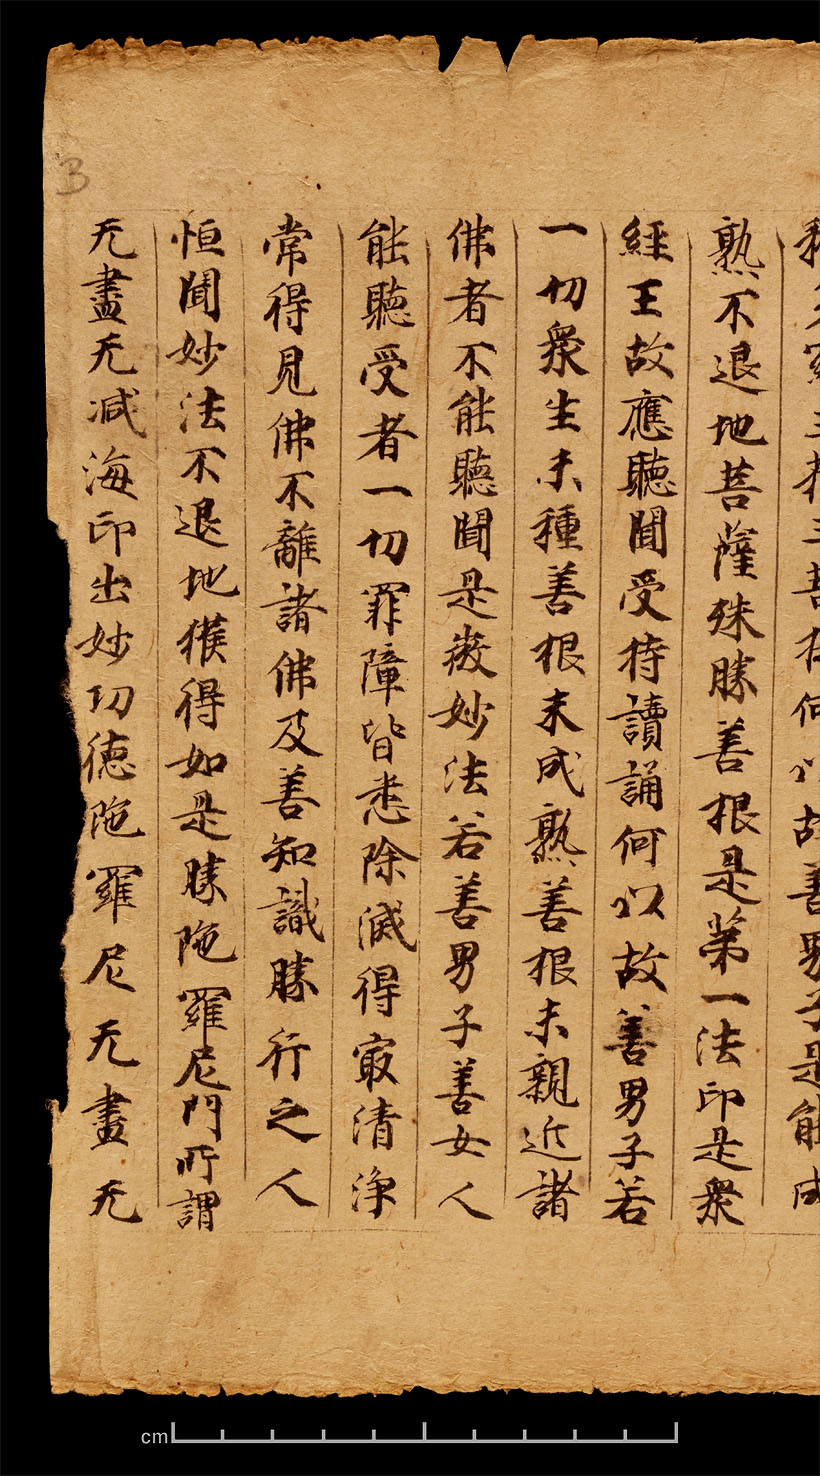 耨多羅三藐三菩提何以故善男子是能成
熟不退地菩薩殊勝善根是第一法印是衆
經王故應聽聞受持讀誦何以故善男子若
一切衆生未種善根未成熟善根未親近諸
佛者不能聽聞是微妙法若善男子善女人
能聽受者一切罪障皆悉除滅得寂清淨
常得見佛不離諸佛及善知識勝行之人
恒聞妙法不退地獲得如是勝陁羅尼門所謂
无盡无减海印出妙功德陁羅尼无盡无
B
cm